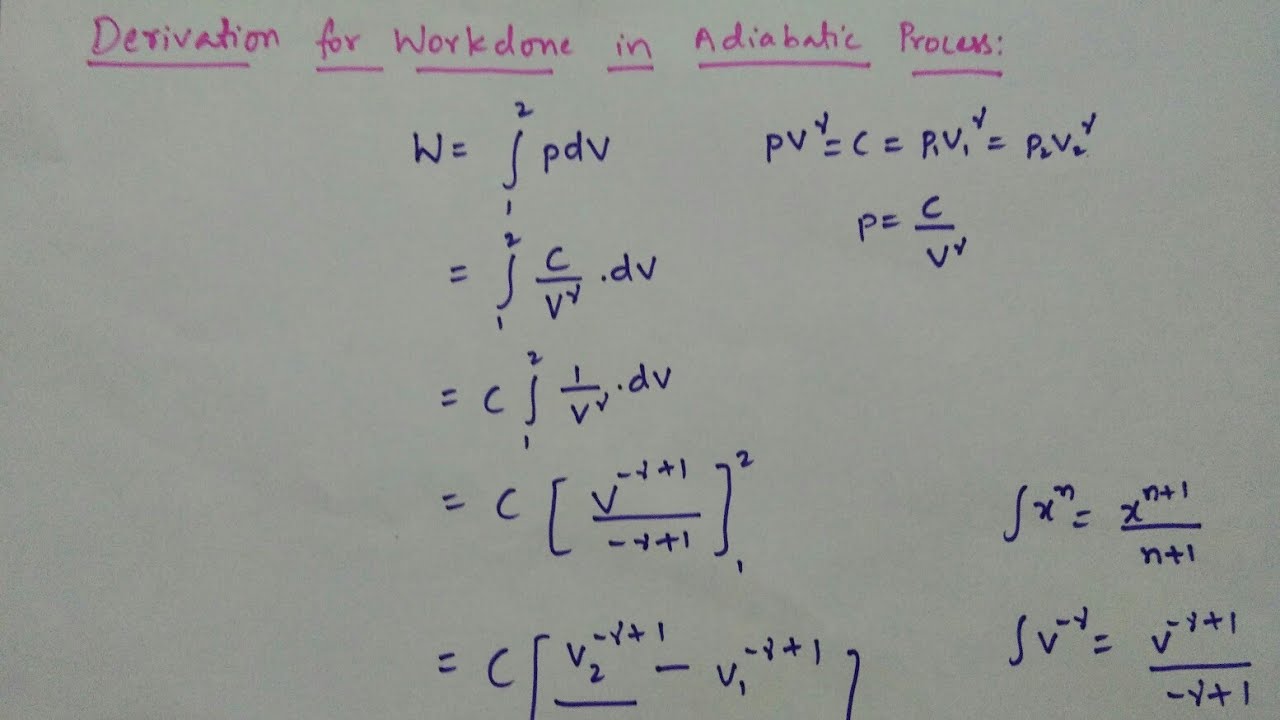 Derivation for Workdone in Adiabatic Process:
W = ∫₁² pdV    pV^γ = C = P₁V₁^γ = P₂V₂^γ
P = C/V^γ
= ∫₁² C/V^γ .dV
= C ∫₁² 1/V^γ .dV
= C [V^(-γ+1)/(-γ+1)]₁²    ∫x^n = x^(n+1)/(n+1)
= C [V₂^(-γ+1) - V₁^(-γ+1)]    ∫V^-γ = V^(-γ+1)/(-γ+1)